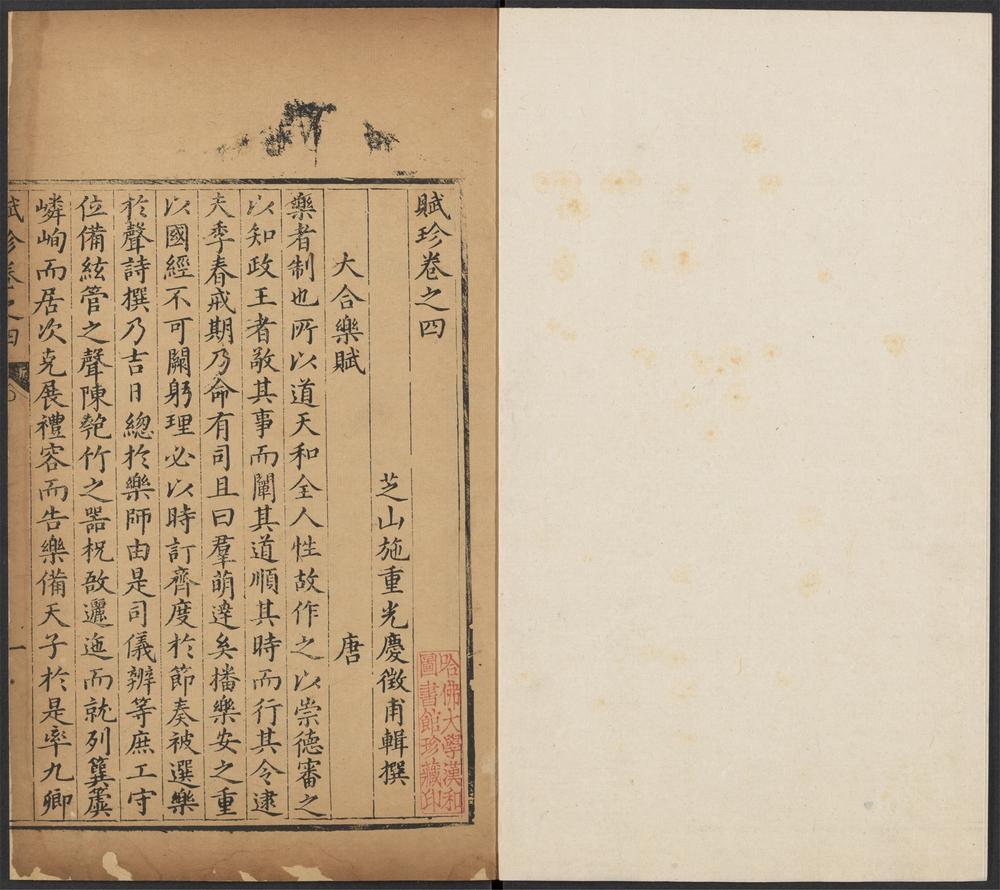 賦珍卷之四
芝山施重光慶徵甫輯撰
大合樂賦 唐
樂者制也所以道天和全人性故作之以崇德審之
以知政王者敬其事而闡其道順其時而行其令逮
夫季春戒期乃命有司且曰羣萌達矣播樂安之重
以國經不可闕躬理必以時訂齊度於節奏被選樂
於聲詩撰乃吉日總於樂師由是司儀辨等庶工守
位備絃管之聲陳匏竹之器柷敔邐迤而就列簨簴
嶙峋而居次克展禮容而告樂備天子於是率九卿
賦珍卷之四
一
哈佛大學漢和
圖書館珍藏印